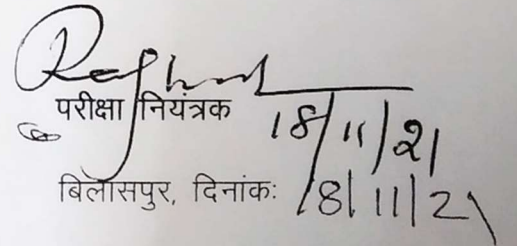 परीक्षा नियंत्रक 18/11/21
बिलासपुर, दिनांक: 18/11/21